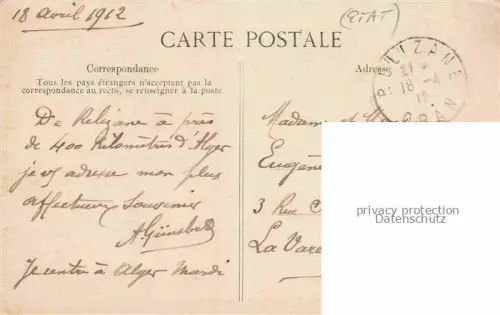 18 avril 1912
(ETAT)
CARTE POSTALE
Correspondance
Tous les pays étrangers n'acceptent pas la
correspondance au recto, se renseigner à la poste.
Adresse
RELIZANE
21
18 -4
12
ORAN
De Relizane à près
de 400 Kilomètres d'Alger
je vs adresse mon plus
affectueux Souvenir
A. Günsberg
Je rentre à Alger Mardi
Madame et
Eugène
3 Rue
La Vare
privacy protection
Datenschutz